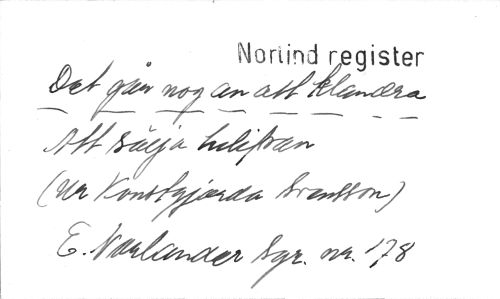 Norlind register
Det går nog an att klandra
Att säija
(Ur Konstgjorda Svensson)
E. Norlander Sgr. nr. 178